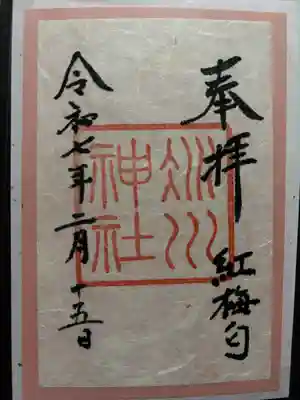 奉拝 紅梅匂
氷川
神社
令和七年二月十五日